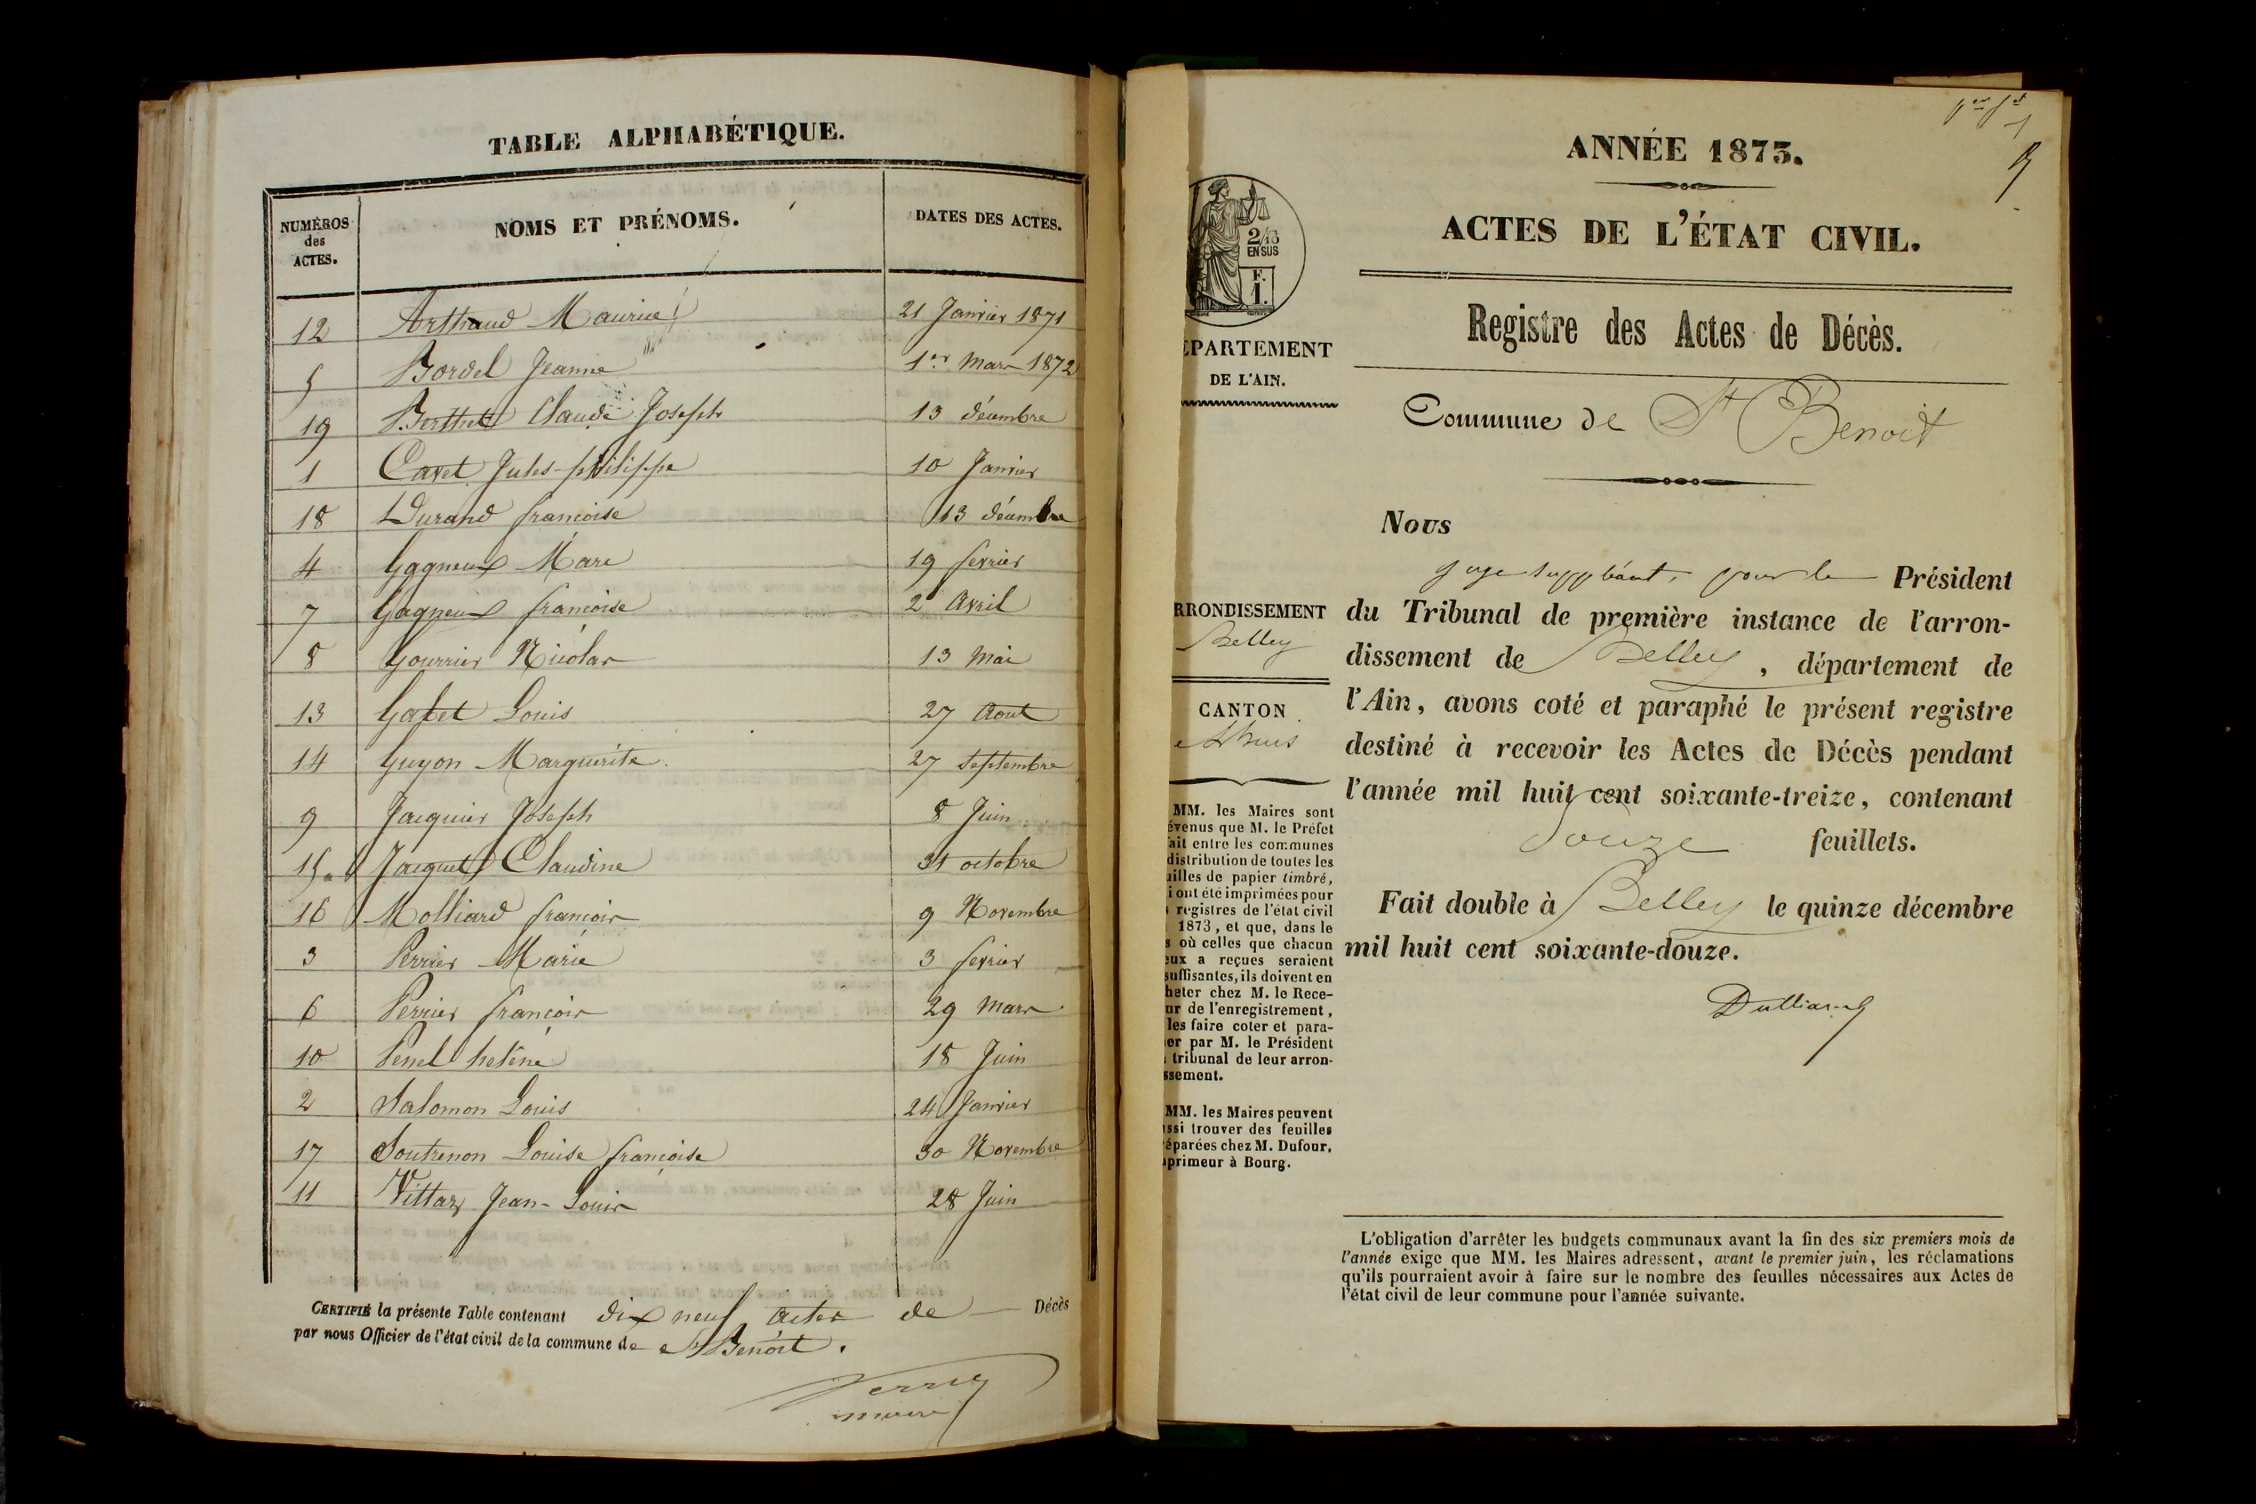 TABLE ALPHABÉTIQUE.
NUMÉROS des ACTES. NOMS ET PRÉNOMS. DATES DES ACTES.
12 Arthaud Maurice 21 Janvier 1871
5 Bordel Jeanne 1er Mars 1872
19 Berthet Claude Joseph 13 décembre
1 Cavet Jules-philippe 10 Janvier
18 Durand françoise 13 décembre
4 Gagneux Marc 19 fevrier
7 Gagneux françoise 2 Avril
8 Gourrier Nicolas 13 Mai
13 Gabet Louis 27 Aout
14 Guyon Marguerite 27 Septembre
9 Jacquier Joseph 8 Juin
15 Jacquet Claudine 31 octobre
16 Molliard françois 9 Novembre
3 Perrier Marie 3 fevrier
6 Perrier françois 29 Mars
10 Penel heléne 18 Juin
2 Salomon Louis 24 Janvier
17 Soutrenon Louise françoise 30 Novembre
11 Vittaz Jean-Louis 28 Juin
CERTIFIÉ la présente Table contenant dix neuf actes de Décès
par nous Officier de l'état civil de la commune de St Benoit.
Perrier
maire
1er ft
1
ANNÉE 1873.
ACTES DE L'ÉTAT CIVIL.
Registre des Actes de Décès.
Commune de St Benoit
2/10
EN SUS
F.
1.
ÉPARTEMENT
DE L'AIN.
RRONDISSEMENT
Belley
CANTON
Lhuis
MM. les Maires sont
évenus que M. le Préfet
fait entre les communes
distribution de toutes les
uilles de papier timbré,
i ont été imprimées pour
s registres de l'état civil
1873, et que, dans le
s où celles que chacun
eux a reçues seraient
suffisantes, ils doivent en
heter chez M. le Rece-
ur de l'enregistrement,
les faire coter et para-
er par M. le Président
tribunal de leur arron-
ssement.
MM. les Maires peuvent
ussi trouver des feuilles
éparées chez M. Dufour,
primeur à Bourg.
Nous
juge suppléant, pour le Président
du Tribunal de première instance de l'arron-
dissement de Belley, département de
l'Ain, avons coté et paraphé le présent registre
destiné à recevoir les Actes de Décès pendant
l'année mil huit cent soixante-treize, contenant
Douze feuillets.
Fait double à Belley le quinze décembre
mil huit cent soixante-douze.
Dulliand
L'obligation d'arrêter les budgets communaux avant la fin des six premiers mois de
l'année exige que MM. les Maires adressent, avant le premier juin, les réclamations
qu'ils pourraient avoir à faire sur le nombre des feuilles nécessaires aux Actes de
l'état civil de leur commune pour l'année suivante.